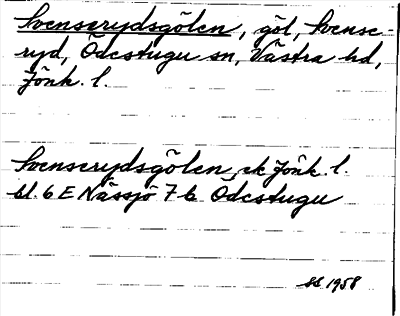 Svenserydsgölen, göl, Svense-
ryd, Ödestugu sn, Västra hd,
Jönk. l.
Svenserydsgölen, ek Jönk. l.
bl. 6 E Nässjö 7 b Ödestugu
1958